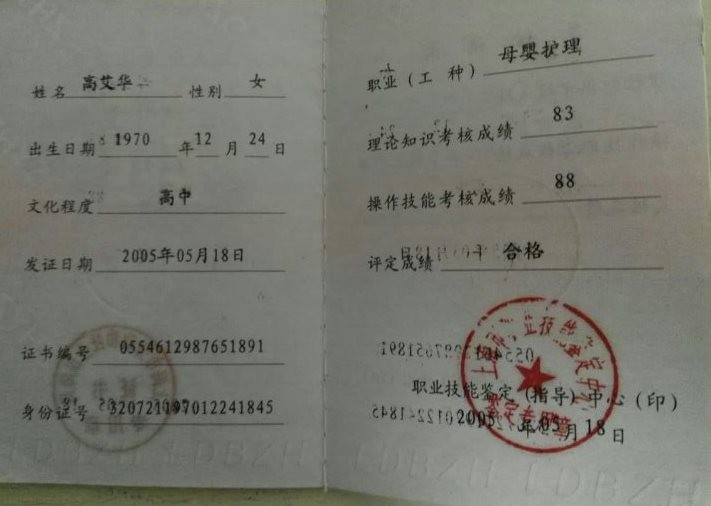 姓名 高艾华 性别 女
出生日期 1970 年 12 月 24 日
文化程度 高中
发证日期 2005年05月18日
证书编号 0554612987651891
身份证号 320721197012241845
职业（工 种） 母婴护理
理论知识考核成绩 83
操作技能考核成绩 88
评定成绩 合格
职业技能鉴定（指导）中心（印）
2005 年 05 月 18 日